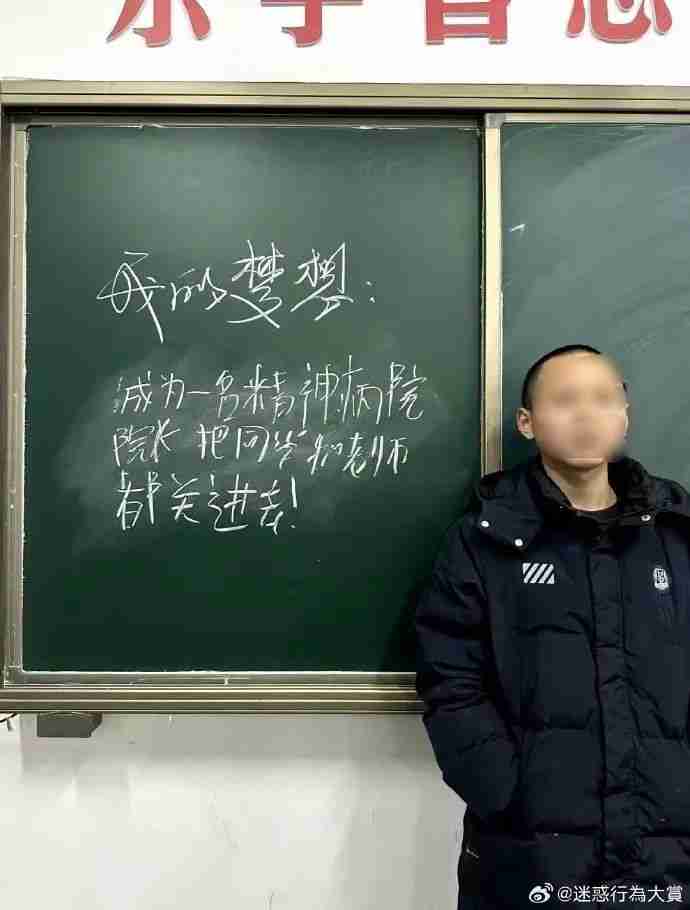 乐学善思
我的梦想：
成为一名精神病院
院长 把同学和老师
都关进去！
@迷惑行為大賞